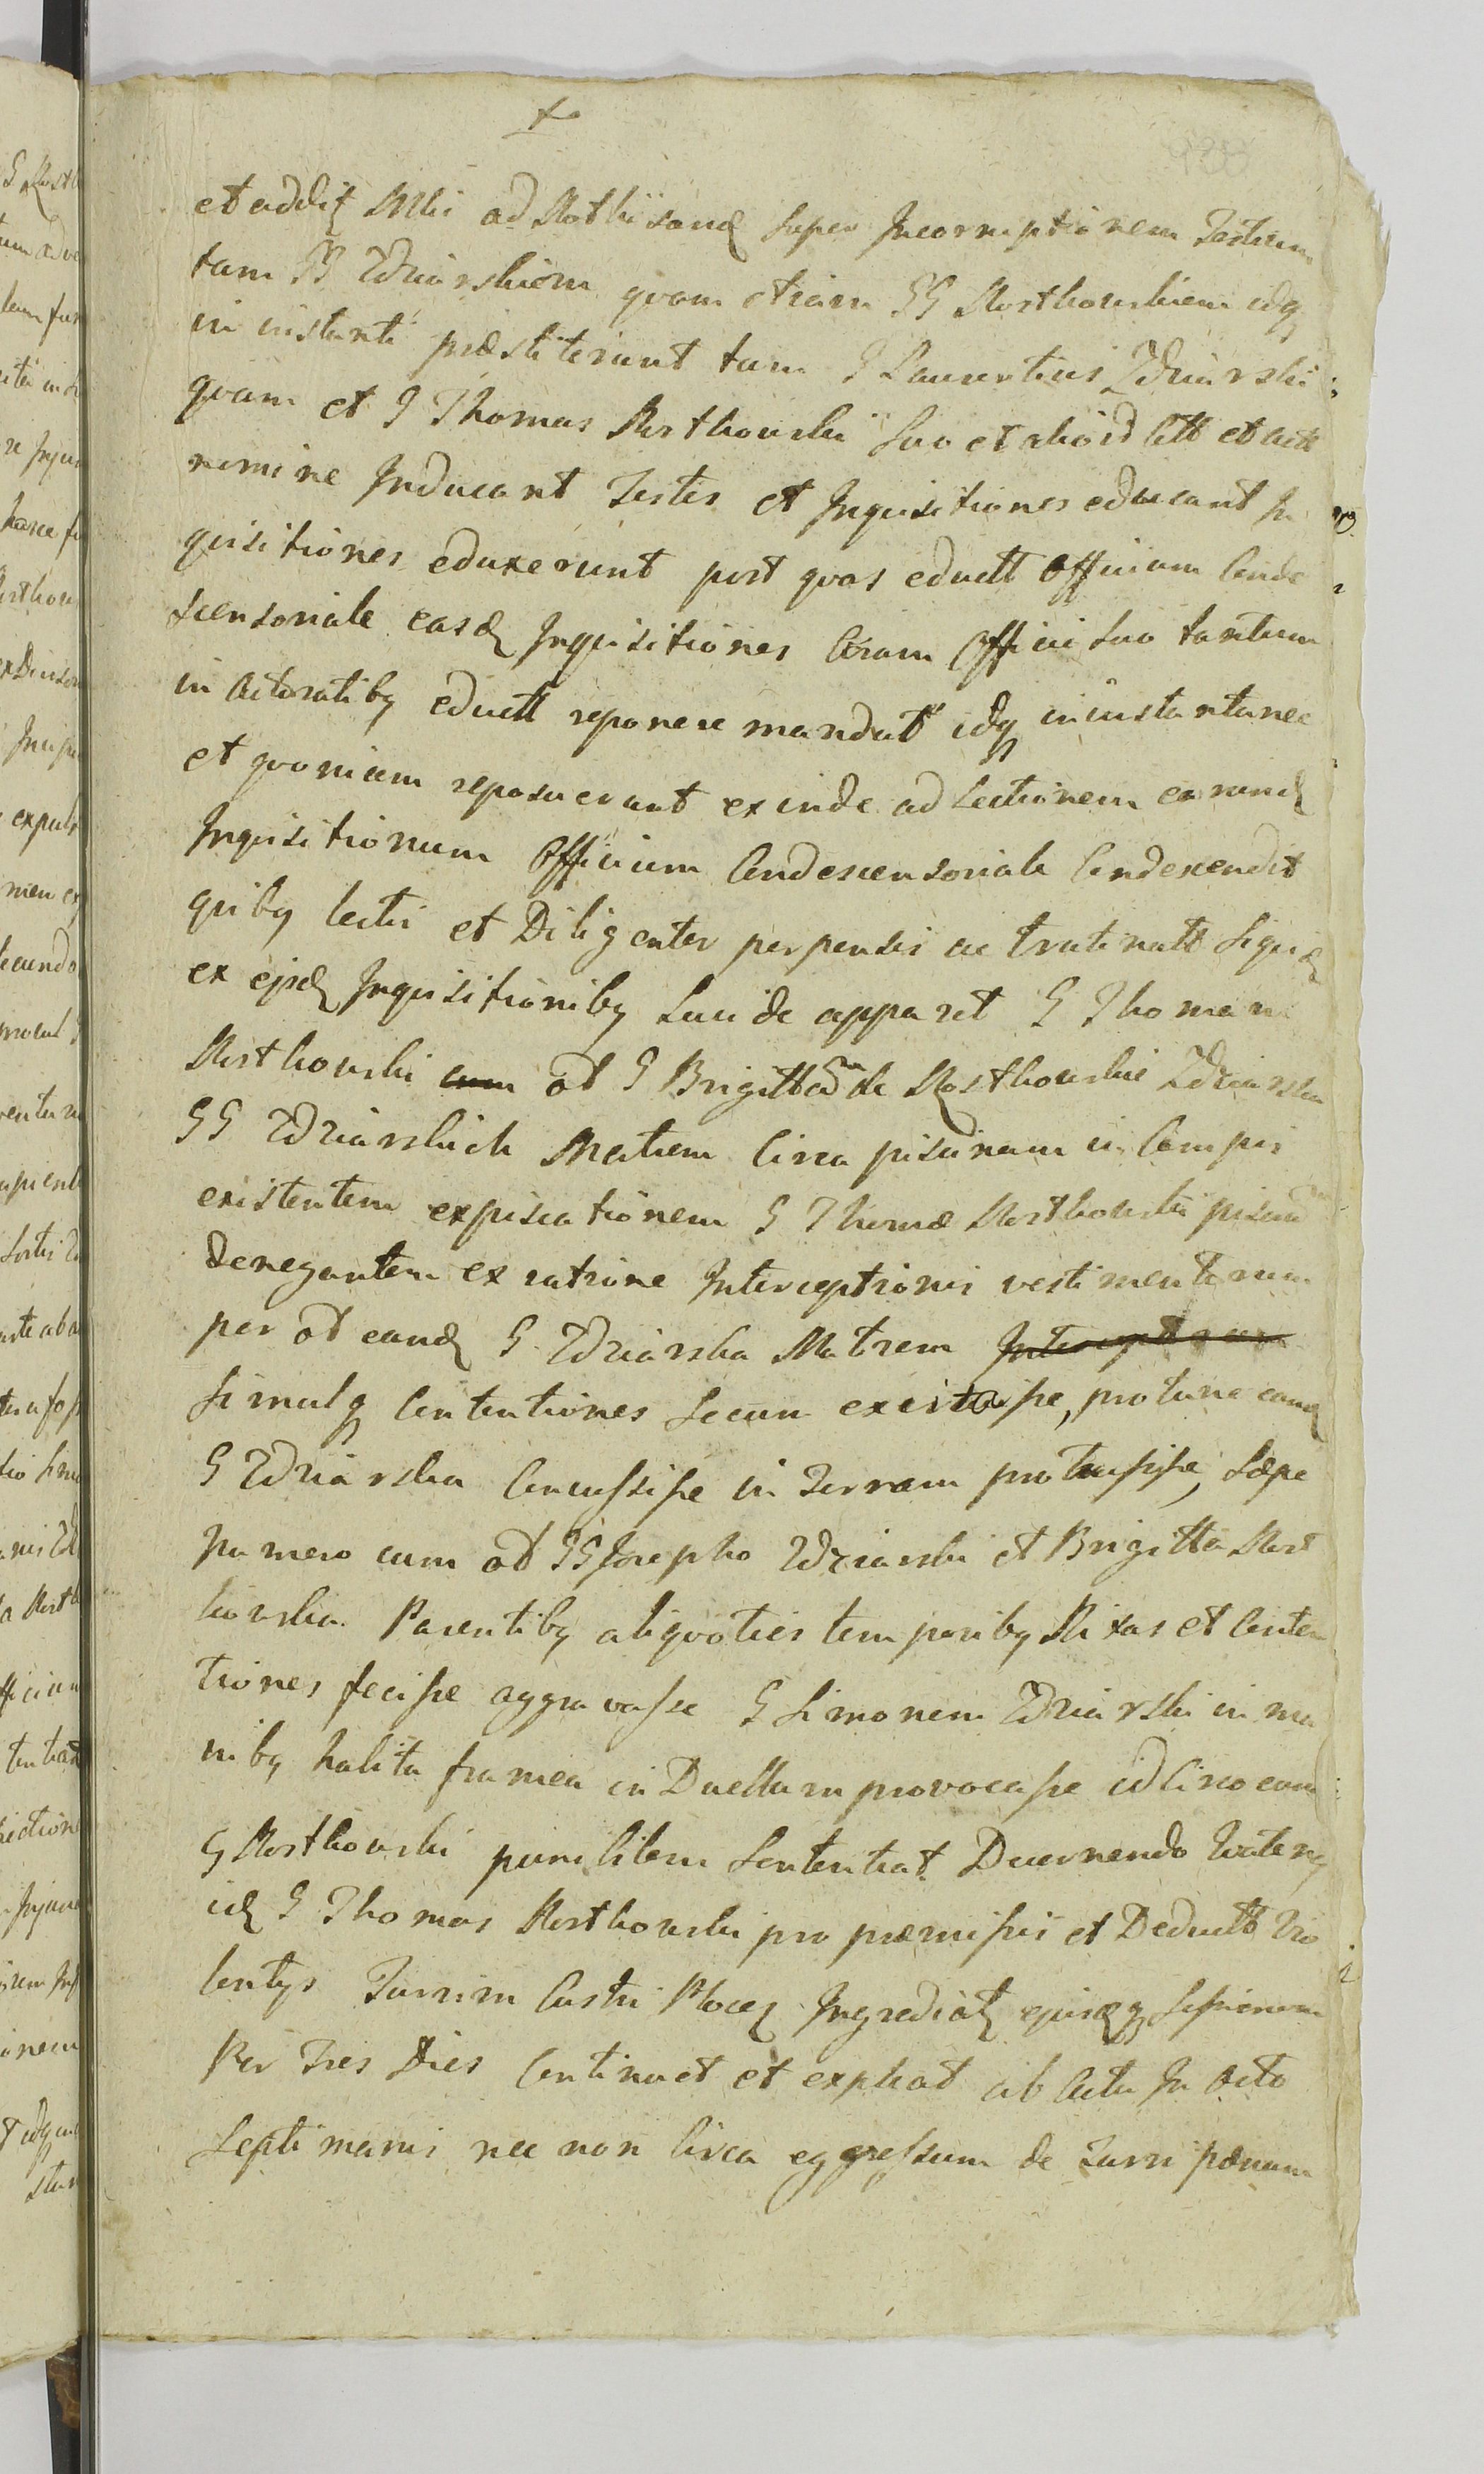 et addit ad Rothisand super Incorruptionem Testium
tam GG Zdziarskiem quam etiam GG Rostkowskiem idq
in instanti præstiterunt tam G Laurentius Zdziarski
quam et G Thomas Rostkowski suo et
nomine Inducant Testes et Inquisitiones educant In
quisitiones eduxerunt post quas eductt Officium Conde
scensoriale easd Inquisitiones Coram Officio suo tantum
in Actoratibq eductt reponere mandat idq in instantanee
et quoniam reposuerunt exinde ad Lectionem earund
Inquisitionum Officium Condescensoriale Condescendit
quibq lectis et Diligenter perpensis ac trutinatt siquid
ex ejusd Inquisitionibq Lucide apparet G Thomam
Rostkowski cum od G Brigittam de Rostkowskie Zdziarska
GG Zdziarskich Matrem Circa piscinam in Campis
existentem expiscationem G Thomæ Rostkowski piscina
denegantem ex ratione Interceptionis vestimentorum
per od eand G Zdziarska Matrem Interceptorum
simulq Contentiones secum excitasse, pro tunc eand
G Zdziarska Concussisse in Terram protrusisse, sæpe
numero cum od GG Josepho Zdziarski et Brigitta Rost
kowska Parentibq aliquoties temporibq Rixas et Conten
tiones fecisse aggravasse G Simonem Zdziarski in ma
nibq habita framea in Duellum provocasse idCirco eund
G Rostkowski punibilem sententiat Decernendo quatenq
id G Thomas Rostkowski pro præmissis et Deductt Vio
lentys Turrim Castri Plocen Ingrediat ejusq sessionem
Per Tres Dies Continuet et expleat ab Actu In octo
Septimanis nec non Circa eggressum de Turri pænam